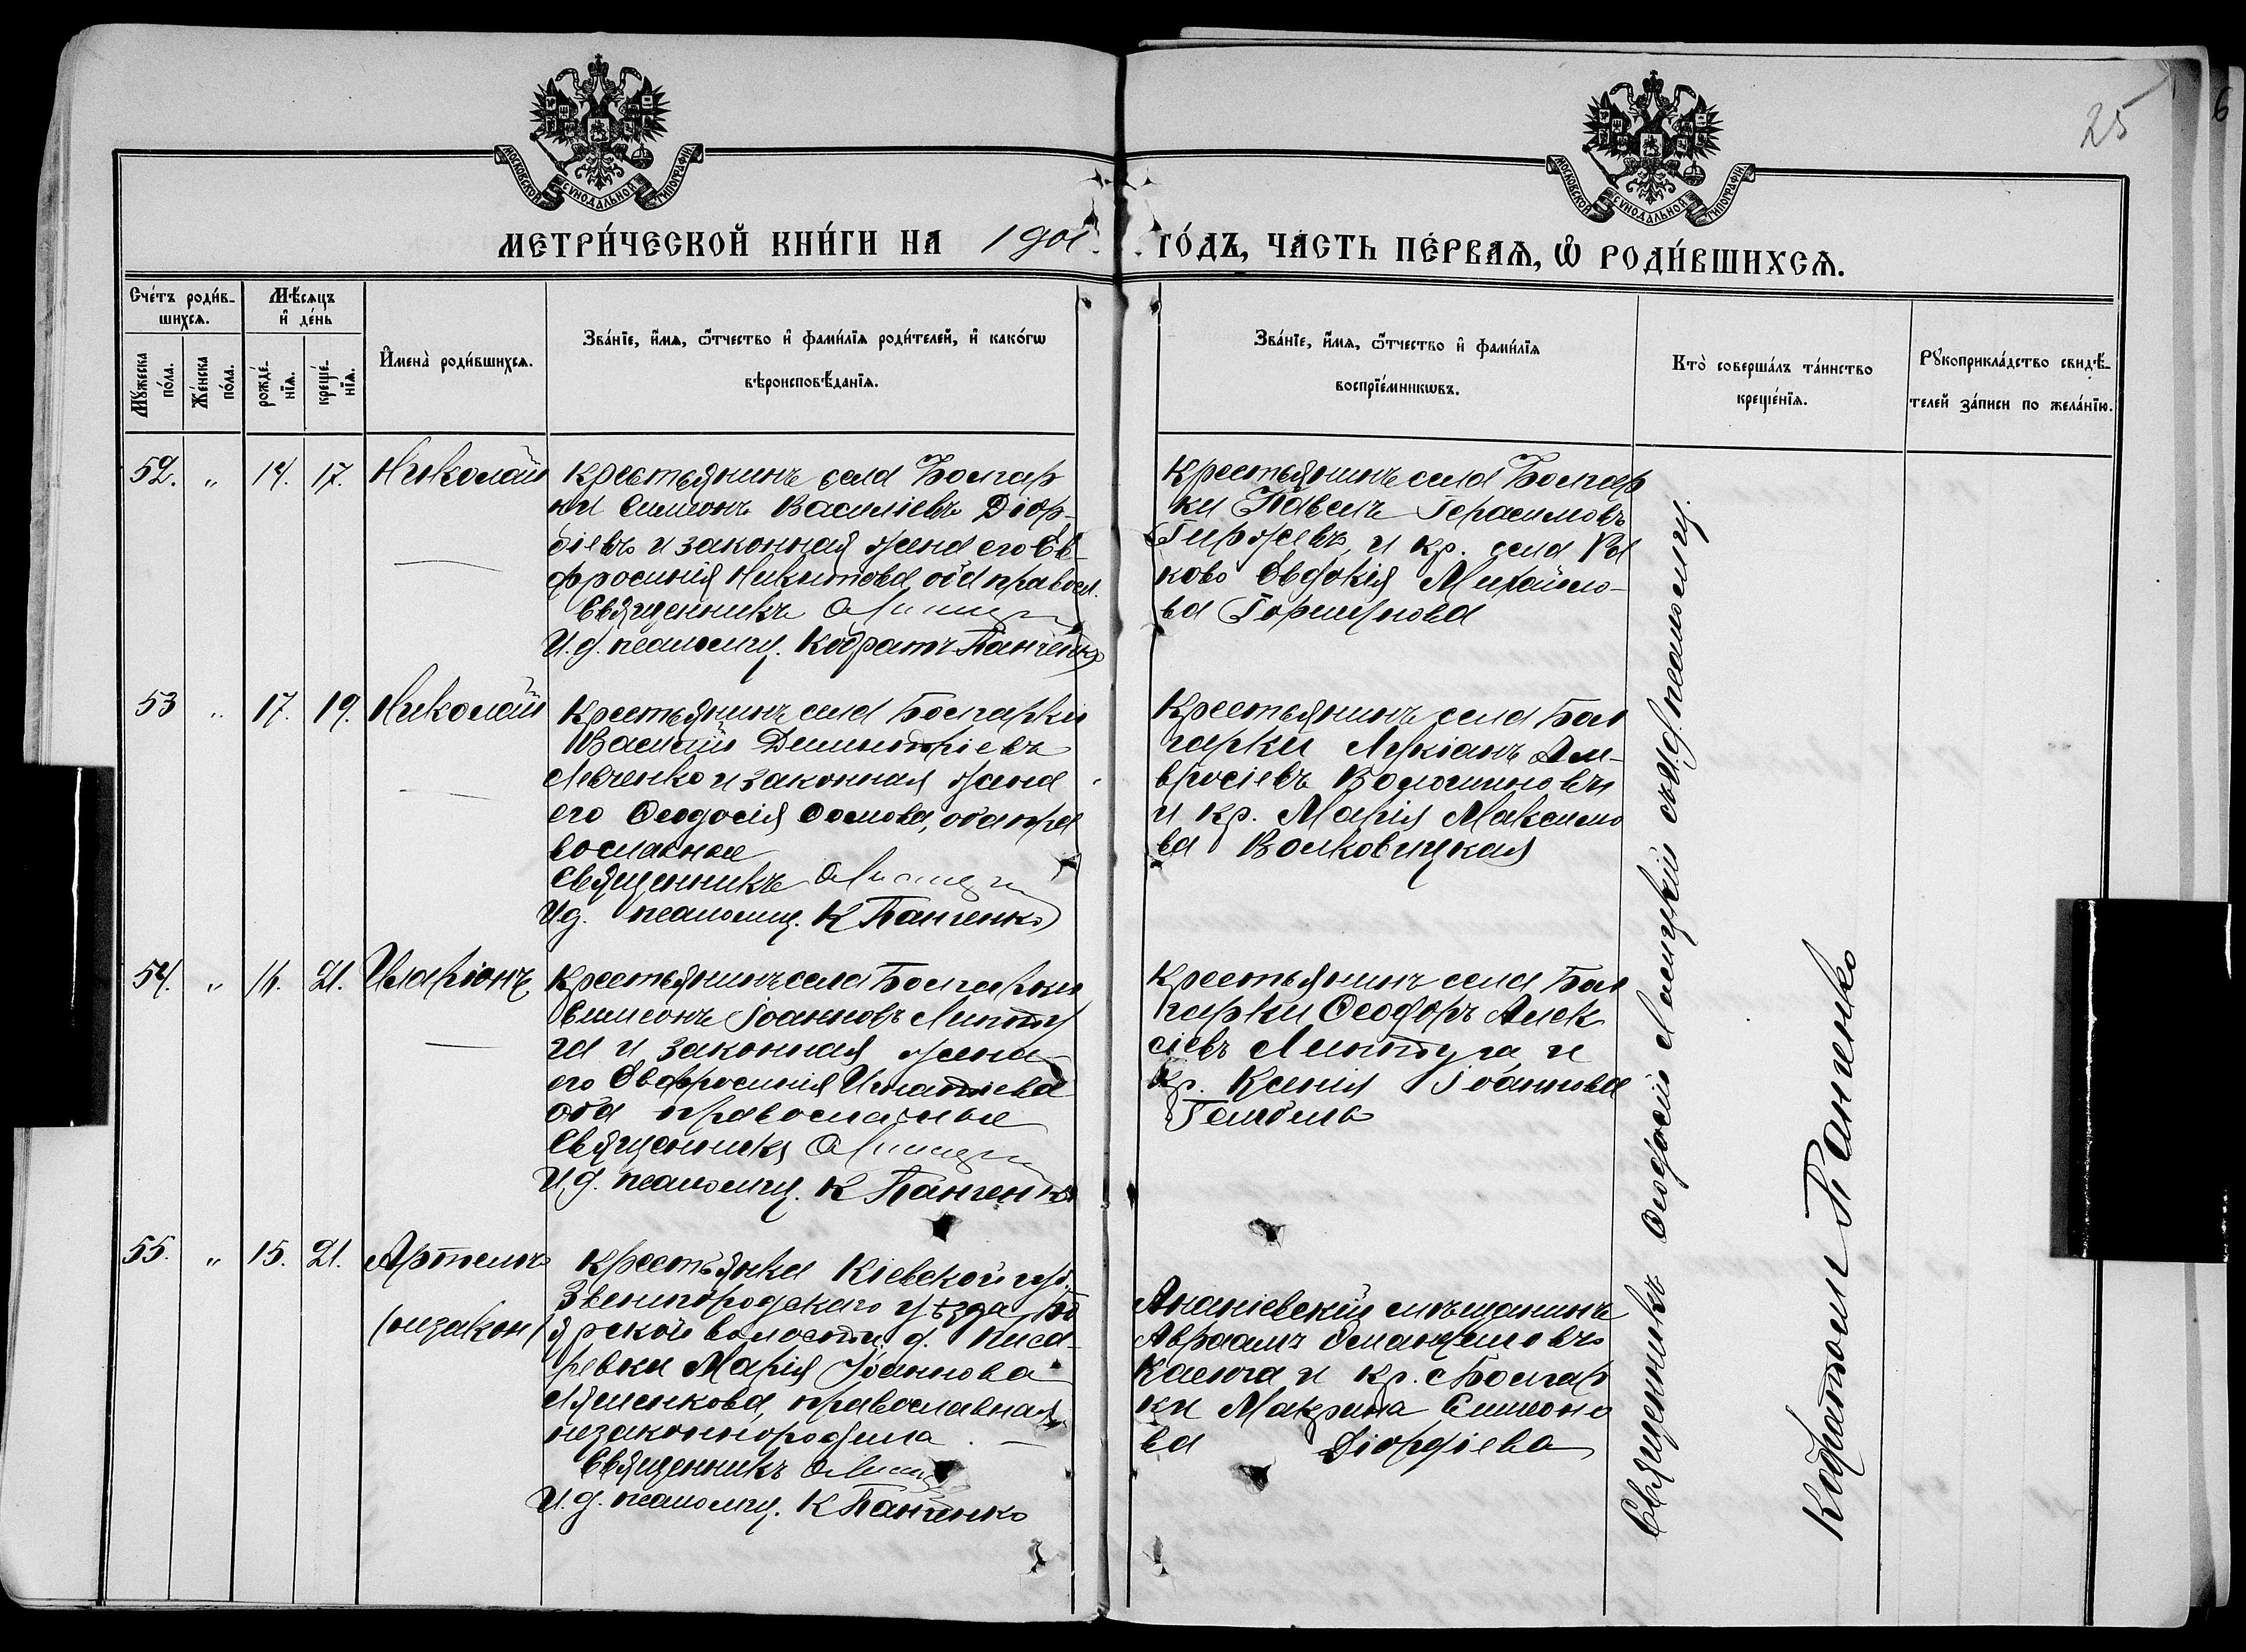 25
6
МОСКОВСКОЙ СѴНОДАЛЬНОЙ ТИПОГРАФІИ
МОСКОВСКОЙ СѴНОДАЛЬНОЙ ТИПОГРАФІИ
МЕТРИ́ЧЕСКОЙ КНИ́ГИ НА 1901 ГО́ДЪ, ЧА́СТЬ ПЕ́РВАѦ, Ѡ҆ РОДИ́ВШИХСѦ.
Сче́тъ роди́в-
шихсѧ.
Мꙋ́жеска по́ла.
Же́нска по́ла.
Мѣ́сѧцъ
и҆ де́нь
рожде́-
нїѧ.
креще́-
нїѧ.
И҆мена̀ роди́вшихсѧ.
Зва́нїе, и҆́мѧ, ѻ҆́тчество и҆ фами́лїѧ роди́телей, и҆ како́гѡ
вѣроисповѣ́данїѧ.
Зва́нїе, и҆́мѧ, ѻ҆́тчество и҆ фами́лїѧ
воспрїе́мникѡвъ.
Кто̀ соверша́лъ та́инство
креще́нїѧ.
Рꙋкоприкла́дство свидѣ́-
телей за́писи по жела́нїю.
52. " 14. 17. Николай
Крестьянинъ села Болгар
ки Симеонъ Василіевъ Діор-
діевъ и законная жена его Ев-
фросинія Никитова, оба правосл.
Священникъ
И.д. псаломщ. Кодратъ Панченко
Крестьянинъ села Болгар
ки Павелъ Герасимовъ
и кр. села
ково Евдокія Михайло-
ва Горшунова
53 " 17. 19. Николай
Крестьянинъ села Болгарки
Василій Димитріевъ
Левченко и законная жена
его Ѳеодосія Ѳомова, оба пра
вославные
Священникъ
И.д. псаломщ. К Панченко
Крестьянинъ села Бол
гарки Лукіанъ Ам-
вросіевъ Волошиновъ
и кр. Марія Максимо
ва Волковицкая
54. " 16. 21. Иларіонъ
Крестьянинъ села Болгарки
Симеонъ Іоанновъ Липту
га и законная жена
его Евфросинія Игнатіева
оба православные
Священникъ
И.д. псаломщ. К Панченко
Крестьянинъ села Бол
гарки Ѳеодоръ Алек
сіевъ Липтуга и
кр. Ксенія Іоаннова
55. " 15. 21. Артемъ
(незакон)
Крестьянка Кіевской губ.
Звенигородскаго уѣзда, Бо
ярской волости, д. Писа-
ревки Марія Іоаннова
Ляшенкова, православная
незаконнородила. —
Священникъ
И.д. псаломщ. К Панченко
Ананіевскій мѣщанинъ
Авраамъ
и кр. с Болгар
ки Макрина Симеоно
ва Діордіева
Священникъ Ѳеодосій съ И.д. псаломщ.
Кодратомъ Панченко